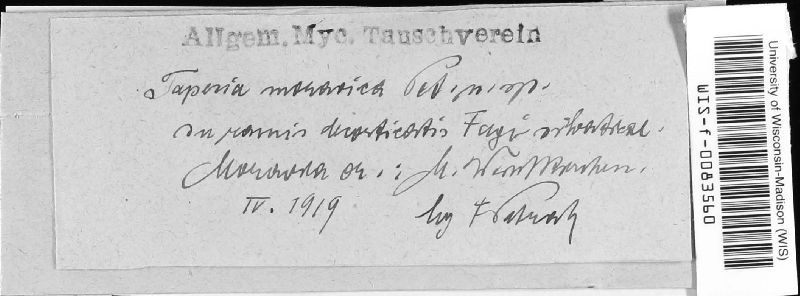 Allgem. Myc. Tauschverein
Taperia moravica Pet. n. sp.
in ramis decorticatis Fagi silvaticae.
Moravia or.: M. Weisskirchen.
IV. 1919 leg F Petrak
University of Wisconsin-Madison (WIS)
WIS-f-0083560